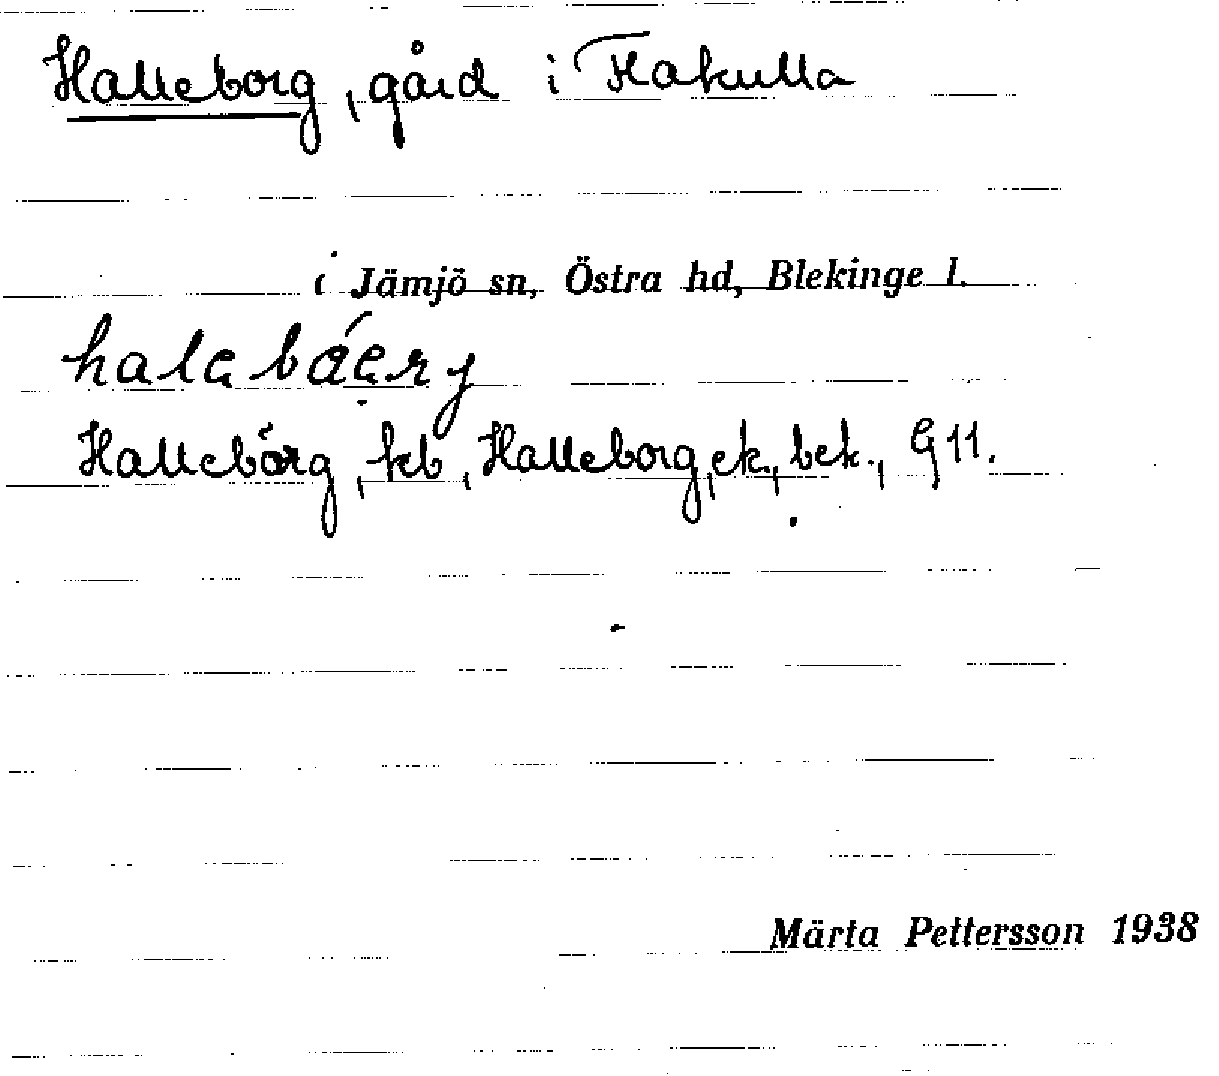 Halleborg, gård i Flakulla
i Jämjö sn, Östra hd, Blekinge l.
Hallebårg, kb, Halleborg, ek., bek., G 11.
Märta Pettersson 1938